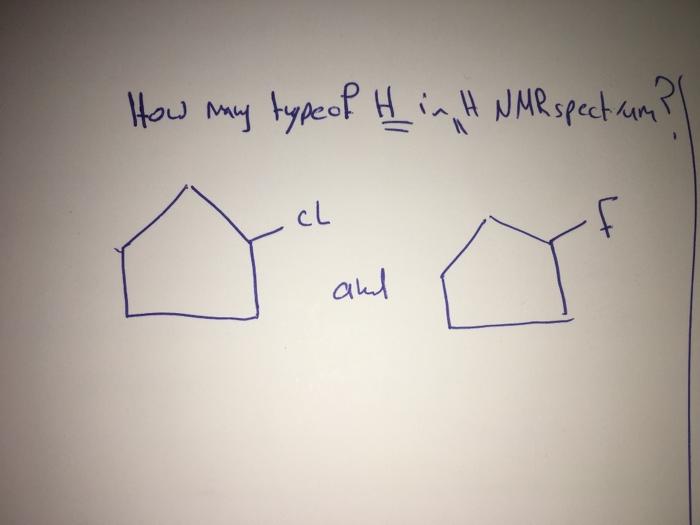 How many type of H in "H NMR spectrum?
CL
F
and